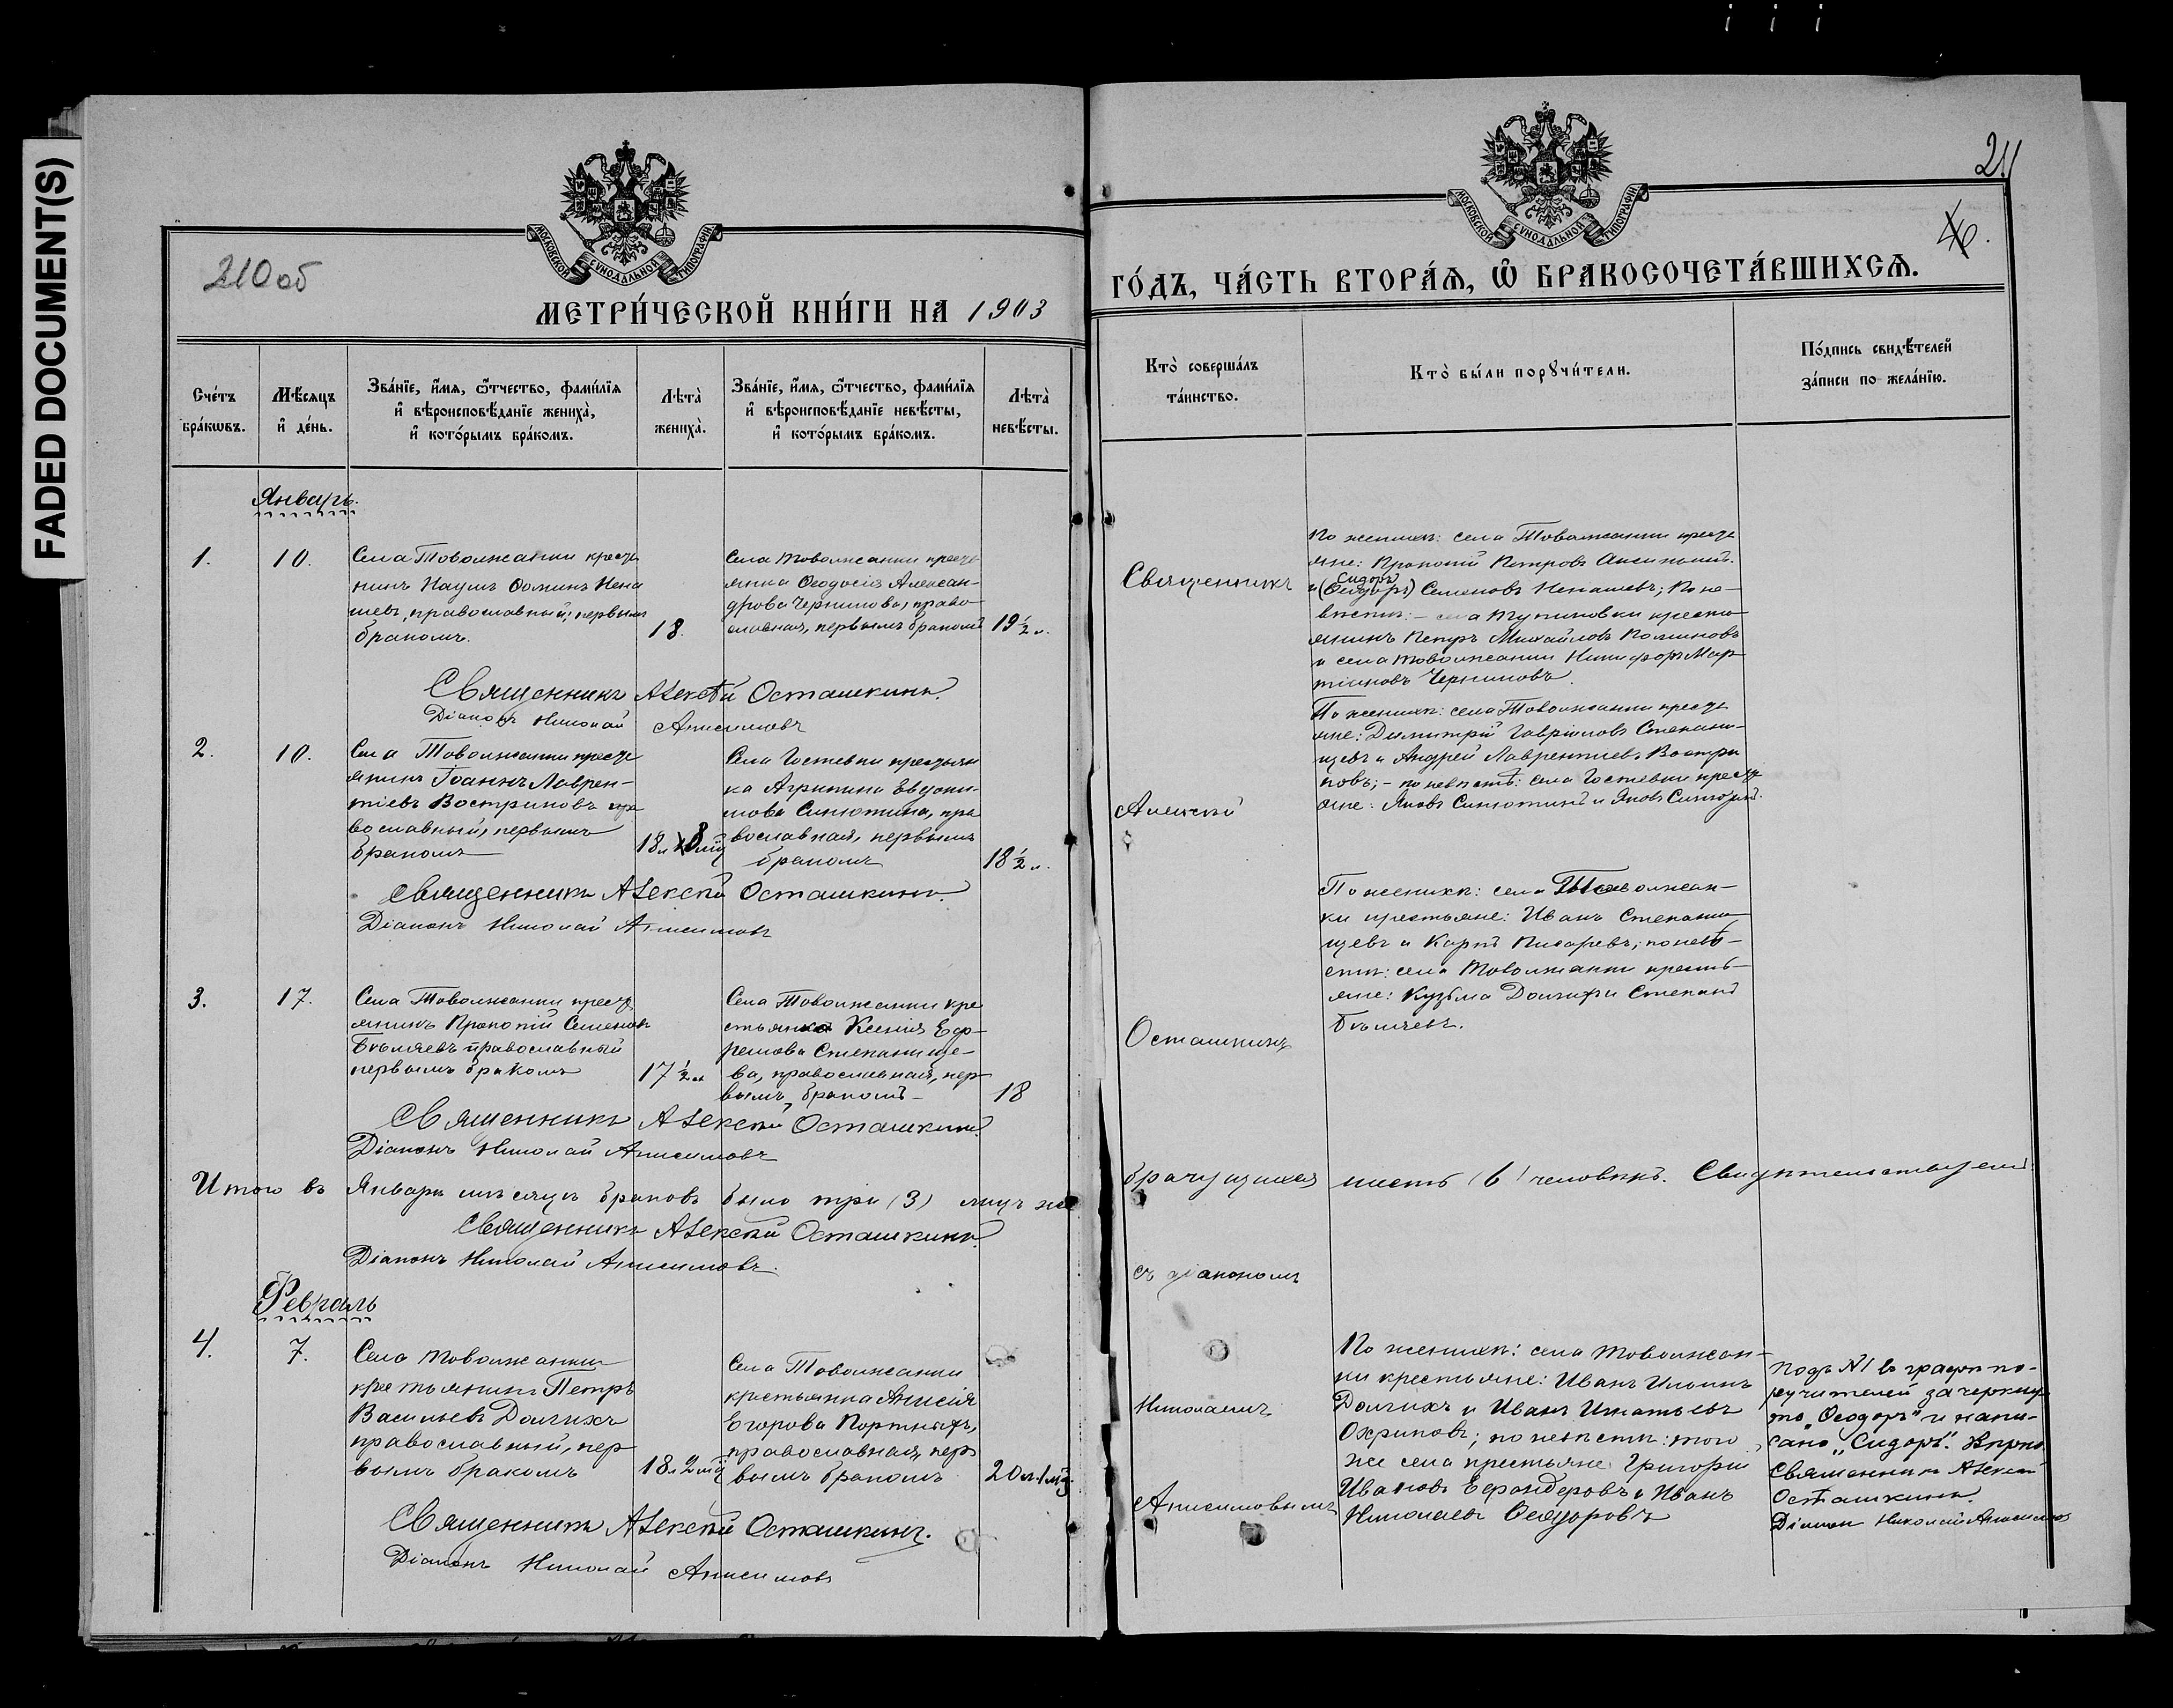 FADED DOCUMENT(S)
210 об
МОСКОВСКОЙ СѴНОДАЛЬНОЙ ТИПОГРАФІИ
МЕТРИ́ЧЕСКОЙ КНИ́ГИ НА 1903
Сче́тъ бра́кѡвъ.
Мѣ́сяцъ и҆ де́нь.
Зва́нїе, и҆́мя, ѻ҆́тчество, фами́лїя и҆ вѣроисповѣ́данїе жениха̀, и҆ кото́рымъ бра́комъ.
Лѣта̀ жениха̀.
Зва́нїе, и҆́мя, ѻ҆́тчество, фами́лїя и҆ вѣроисповѣ́данїе невѣ́сты, и҆ кото́рымъ бра́комъ.
Лѣта̀ невѣ́сты.
Январь.
1.
10.
Села Товолжанки кресть
нинъ Наумъ Ѳоминъ Нена
шевъ, православный, первымъ
бракомъ.
18.
Села Товолжанки кресть
янка Ѳеодосія Алексан-
дрова Черникова, право
славная, первымъ бракомъ
19½ л.
Священникъ Алексѣй Осташкинъ.
Діаконъ Николай Анисимовъ
2.
10.
Села Товолжанки кресть
янинъ Іоаннъ Лаврен-
тіевъ Востриковъ пра
вославный, первымъ
бракомъ
18 л. 8 мц
Села Гостевки крестьян
ка Агрипина Евдоки-
мова Синютина, пра
вославная, первымъ
бракомъ
18½ л.
Священникъ Алексѣй Осташкинъ.
Діаконъ Николай Анисимовъ
3.
17.
Села Товолжанки кресть
янинъ Прокопій Семеновъ
Бѣляевъ православный
первымъ бракомъ
17½ л
Села Товолжанки кре
стьянка Ксенія Еф-
ремова Степанище-
ва, православная, пер
вымъ бракомъ-
18
Священникъ Алексѣй Осташкинъ.
Діаконъ Николай Анисимовъ
Итого въ Январѣ мѣсяцѣ браковъ было три (3) лицъ же
Священникъ Алексѣй Осташкинъ.
Діаконъ Николай Анисимовъ.
Февраль
4.
7.
Села Товолжанки
крестьянинъ Петръ
Васильевъ Долгихъ
православный, пер
вымъ бракомъ
18 л 2 мц
Села Товолжанки
крестьянка Анисія
Егорова Портныхъ,
православная, пер
вымъ бракомъ
20 л. 1 мц.
Священникъ Алексѣй Осташкинъ.
Діаконъ Николай Анисимовъ
211
46.
МОСКОВСКОЙ СѴНОДАЛЬНОЙ ТИПОГРАФІИ
ГО́ДЪ, ЧА́СТЬ ВТОРА́Я, Ѽ БРАКОСОЧЕТА́ВШИХСЯ.
Кто̀ соверша́лъ та́инство.
Кто̀ бы́ли порꙋчи́тели.
По́дпись свидѣ́телей за́писи по жела́нїю.
Священникъ
Алексѣй
Осташкинъ
По женихѣ: села Товолжанки кресть
яне: Прокопій Петровъ
Сидоръ
и (Ѳеодоръ) Семеновъ Ненашевъ; По не-
вѣстѣ:- села крестья
янинъ Петръ Михайловъ
и села Товолжанки Никифоръ Мар
тиновъ Черниковъ.
По женихѣ: села Товолжанки кресть
яне: Димитрій Гавріиловъ Степани-
щевъ и Андрей Лаврентіевъ Востри
ковъ; - по невѣстѣ: села Гостевки кресть
яне: Яковъ Синютинъ и Яковъ
По женихѣ: села Товолжан-
ки крестьяне: Иванъ Степани
щевъ и Карпъ Писаревъ; по невѣ-
стѣ: села Товолжанки кресть-
яне: Кузьма Долгихъ и Степанъ
Бѣляевъ.
брачущихся шесть (6) человѣкъ. Свидѣтельствуемъ
съ діакономъ
Николаемъ
Анисимовымъ
По женихѣ: села Товолжан-
ки крестьяне: Иванъ Ильинъ
Долгихъ и Иванъ Игнатьевъ
; по невѣстѣ: того
же села крестьяне Григорій
Ивановъ и Иванъ
Николаевъ Ѳеодоровъ
Подъ №1 въ графѣ по-
ручителей зачеркну
то „Ѳеодоръ" и напи-
сано „Сидоръ".
Священникъ Алексѣй
Осташкинъ.
Діаконъ Николай Анисимовъ